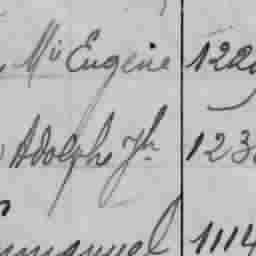 Mie Eugène 122
Adolphe Jh 123
mmanuel 1114